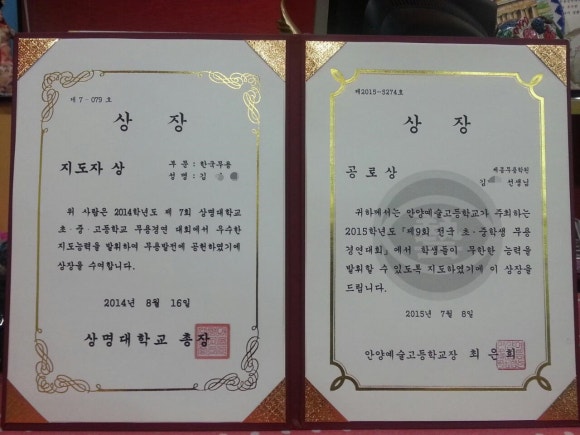 제 7 - 079 호
상 장
지도자 상
부 문 : 한국무용
성 명 : 김
위 사람은 2014학년도 제 7회 상명대학교
초·중·고등학교 무용경연 대회에서 우수한
지도능력을 발휘하여 무용발전에 공헌하였기에
상장을 수여합니다.
2014년 8월 16일
상명대학교 총장
제2015-5274호
상 장
공로상
무용학원
김 선생님
귀하께서는 안양예술고등학교가 주최하는
2015학년도 「제9회 전국 초·중학생 무용
경연대회」에서 학생들이 무한한 능력을
발휘할 수 있도록 지도하였기에 이 상장을
드립니다.
2015년 7월 8일
안양예술고등학교장 최 은 희